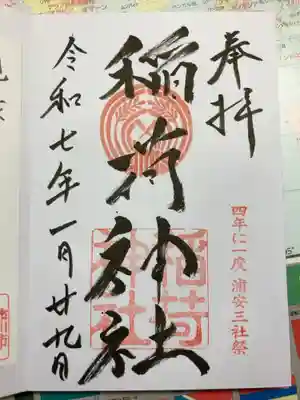 奉拝
四年に一度 浦安三社祭
稲荷神社
稲荷神社
令和七年一月廿九日
川市